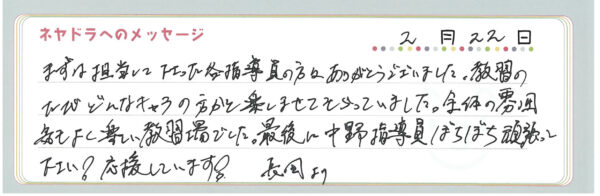 ネヤドラへのメッセージ
2月22日
まずは担当して下さった各指導員の方々ありがとうございました。教習の
たびどんなキャラの方かと楽しませてもらっていました。全体の雰囲
気もよく楽しい教習場でした。最後に中野指導員ぼちぼち頑張って
下さい? 応援しています?
長岡より